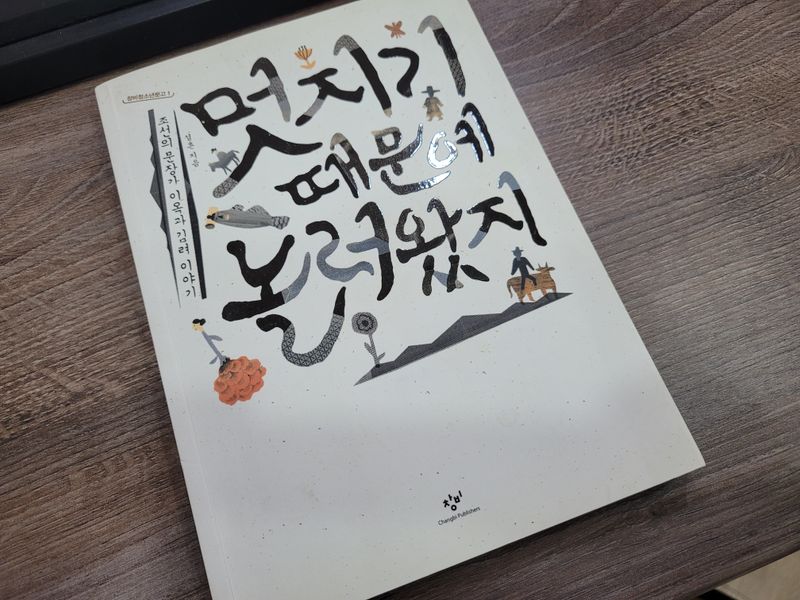 창비청소년문고 1
멋지기
때문에
놀러왔지
조선의 문장가 이옥과 김려 이야기
설흔 지음
창비
Changbi Publishers